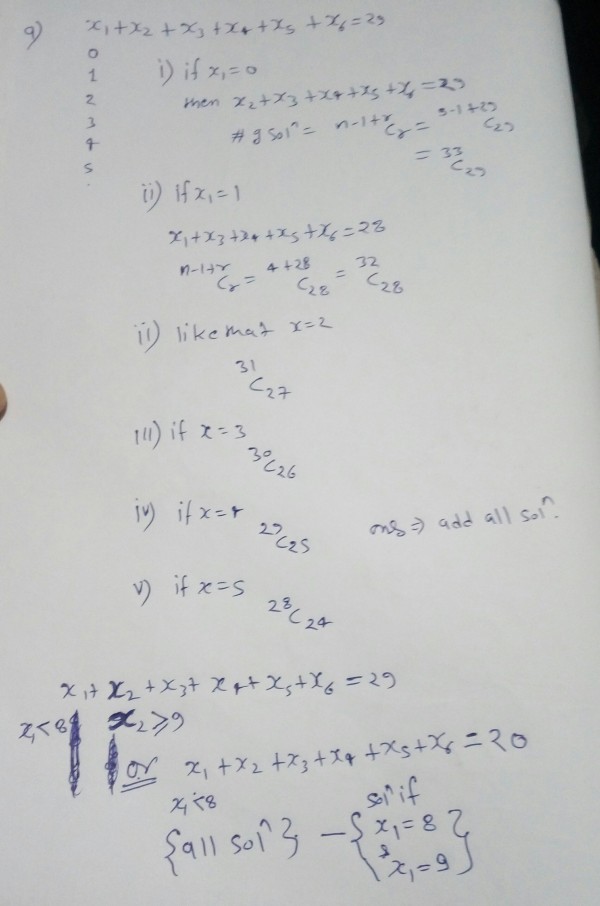 9) x₁+x₂+x₃+x₄+x₅+x₆=29
0
1
2
3
4
5
i) if x₁=0
then x₂+x₃+x₄+x₅+x₆=29
# of solⁿ= ⁿ⁻¹⁺ʳCᵣ = ⁵⁻¹⁺²⁹C₂₉
= ³³C₂₉
ii) if x₁=1
x₁+x₃+x₄+x₅+x₆=28
ⁿ⁻¹⁺ʳCᵣ = ⁴⁺²⁸C₂₈ = ³²C₂₈
ii) like that x=2
³¹C₂₇
iii) if x=3
³⁰C₂₆
iv) if x=4
²⁹C₂₅
ans ⇒ add all solⁿ.
v) if x=5
²⁸C₂₄
x₁+x₂+x₃+x₄+x₅+x₆=29
x₁<8 x₂≥9
or x₁+x₂+x₃+x₄+x₅+x₆=20
x₁<8
{all solⁿ} - {solⁿ if x₁=8 & x₁=9}